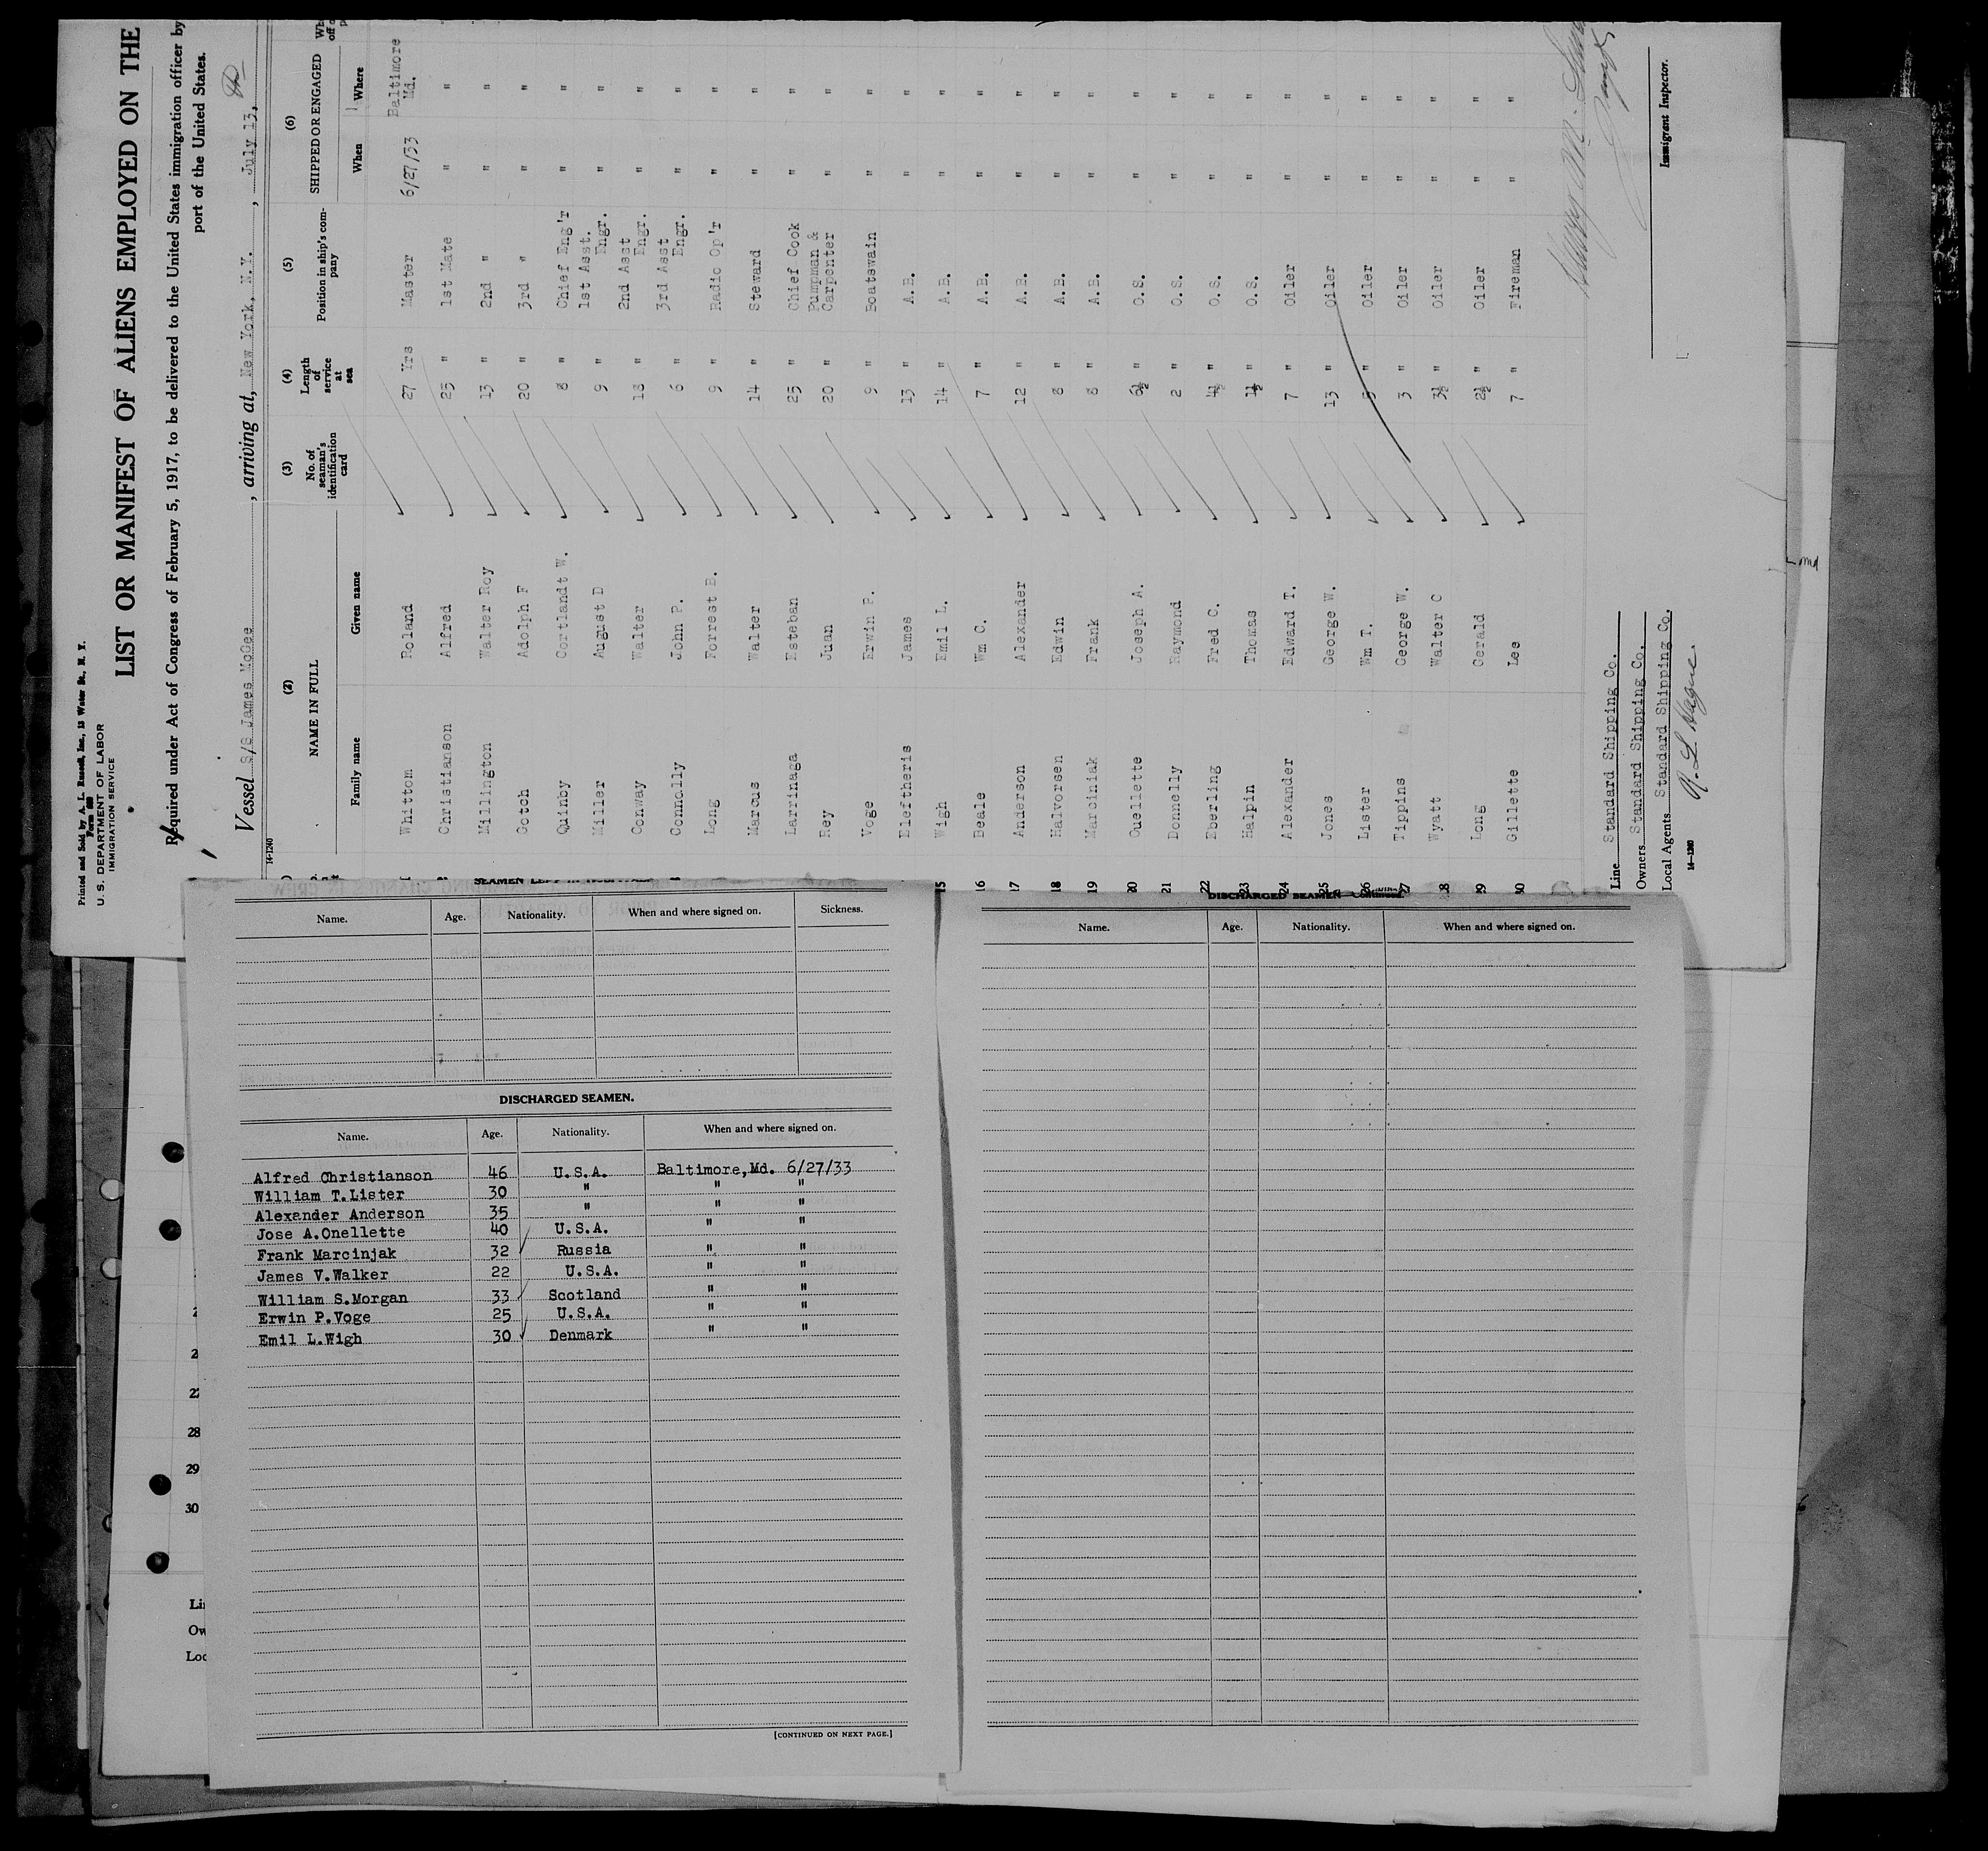 Printed and Sold by A. L. Russell, Inc., 13 Water St., N. Y.
Form 689
U. S. DEPARTMENT OF LABOR
IMMIGRATION SERVICE
LIST OR MANIFEST OF ALIENS EMPLOYED ON THE
Required under Act of Congress of February 5, 1917, to be delivered to the United States immigration officer by
port of the United States.
Vessel S/S James McGee, arriving at, New York, N.Y., July 13,
14-1240
(2) (3) (4) (5) (6)
NAME IN FULL No. of seaman's identification card Length of service at sea Position in ship's company SHIPPED OR ENGAGED
Family name Given name When Where
Whittom Roland 27 Yrs Master 6/27/33 Baltimore Md.
Christianson Alfred 25 " 1st Mate " "
Millington Walter Roy 13 " 2nd " " "
Gotch Adolph F 20 " 3rd " " "
Quinby Cortlandt W. 8 " Chief Eng'r " "
Miller August D 9 " 1st Asst. Engr. " "
Conway Walter 18 " 2nd Asst Engr. " "
Connolly John P. 6 " 3rd Asst Engr. " "
Long Forrest B. 9 " Radio Op'r " "
Marcus Walter 14 " Steward " "
Larrinaga Esteban 25 " Chief Cook " "
Rey Juan 20 " Pumpman & Carpenter " "
Voge Erwin P. 9 " Boatswain " "
Eleftheris James 13 " A.B. " "
15 Wigh Emil L. 14 " A.B. " "
16 Beale Wm C. 7 " A.B. " "
17 Anderson Alexander 12 " A.B. " "
18 Halvorsen Edwin 8 " A.B. " "
19 Marciniak Frank 8 " A.B. " "
20 Ouellette Joseph A. 6½ " O.S. " "
21 Donnelly Raymond 2 " O.S. " "
22 Eberling Fred C. 4½ " O.S. " "
23 Halpin Thomas 1½ " O.S. " "
24 Alexander Edward T. 7 " Oiler " "
25 Jones George W. 13 " Oiler " "
26 Lister Wm T. 5 " Oiler " "
27 Tippins George W. 3 " Oiler " "
28 Wyatt Walter C 3½ " Oiler " "
29 Long Gerald 2½ " Oiler " "
30 Gillette Lee 7 " Fireman " "
Line Standard Shipping Co.
Owners Standard Shipping Co.
Local Agents Standard Shipping Co.
14-1240
Immigrant Inspector.
Name. Age. Nationality. When and where signed on. Sickness.
DISCHARGED SEAMEN.
Name. Age. Nationality. When and where signed on.
Alfred Christianson 46 U.S.A. Baltimore,Md. 6/27/33
William T.Lister 30 " " "
Alexander Anderson 35 " " "
Jose A.Onellette 40 U.S.A. " "
Frank Marcinjak 32 Russia " "
James V.Walker 22 U.S.A. " "
William S.Morgan 33 Scotland " "
Erwin P.Voge 25 U.S.A. " "
Emil L.Wigh 30 Denmark " "
[CONTINUED ON NEXT PAGE.]
DISCHARGED SEAMEN—Continued.
Name. Age. Nationality. When and where signed on.
28
29
30